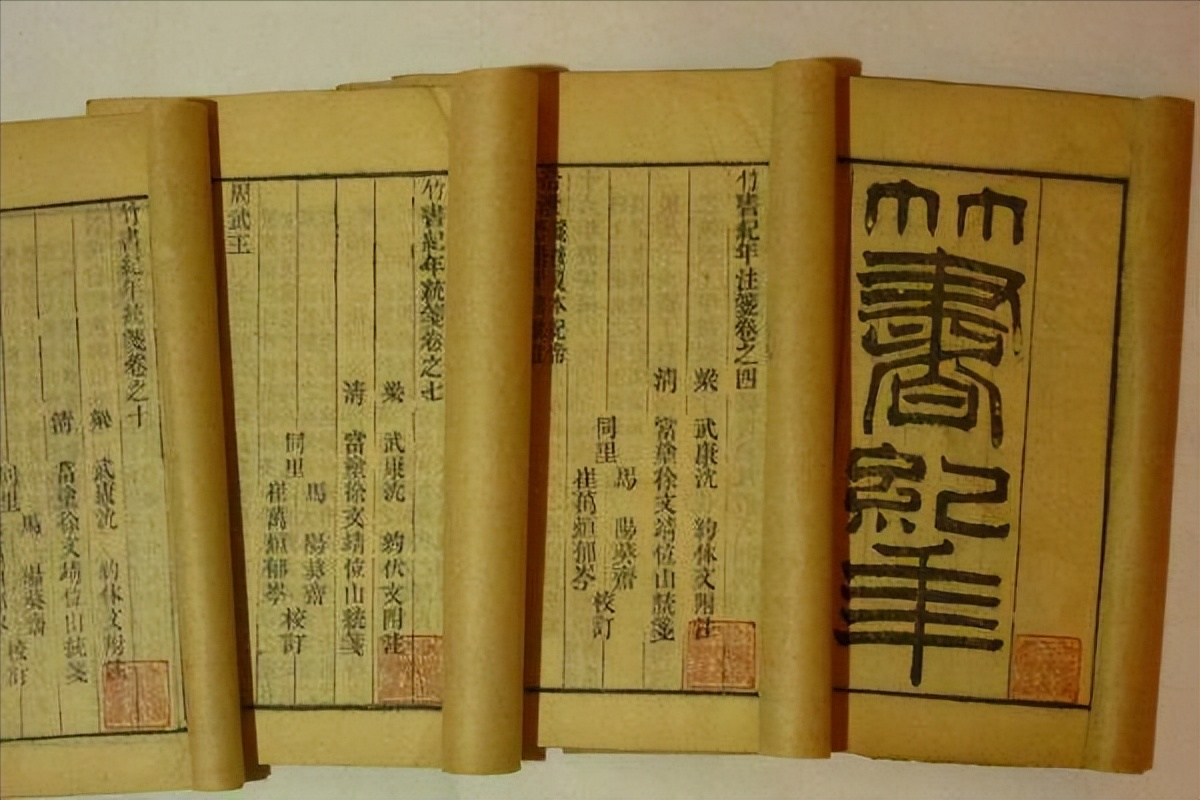 竹書紀年
竹書紀年注箋卷之四
梁 武康沈 約休文附注
清 當塗徐文靖位山統箋
馬 陽葵齋
同里
崔萬烜郁岑
校訂
竹書紀年統箋卷之七
梁 武康沈 約休文附注
清 當塗徐文靖位山統箋
馬 陽葵齋
同里
崔萬烜郁岑
校訂
周武王
竹書紀年統箋卷之十
梁 武康沈 約休文附注
清 當塗徐文靖位山統箋
馬 陽葵齋
同里
校訂